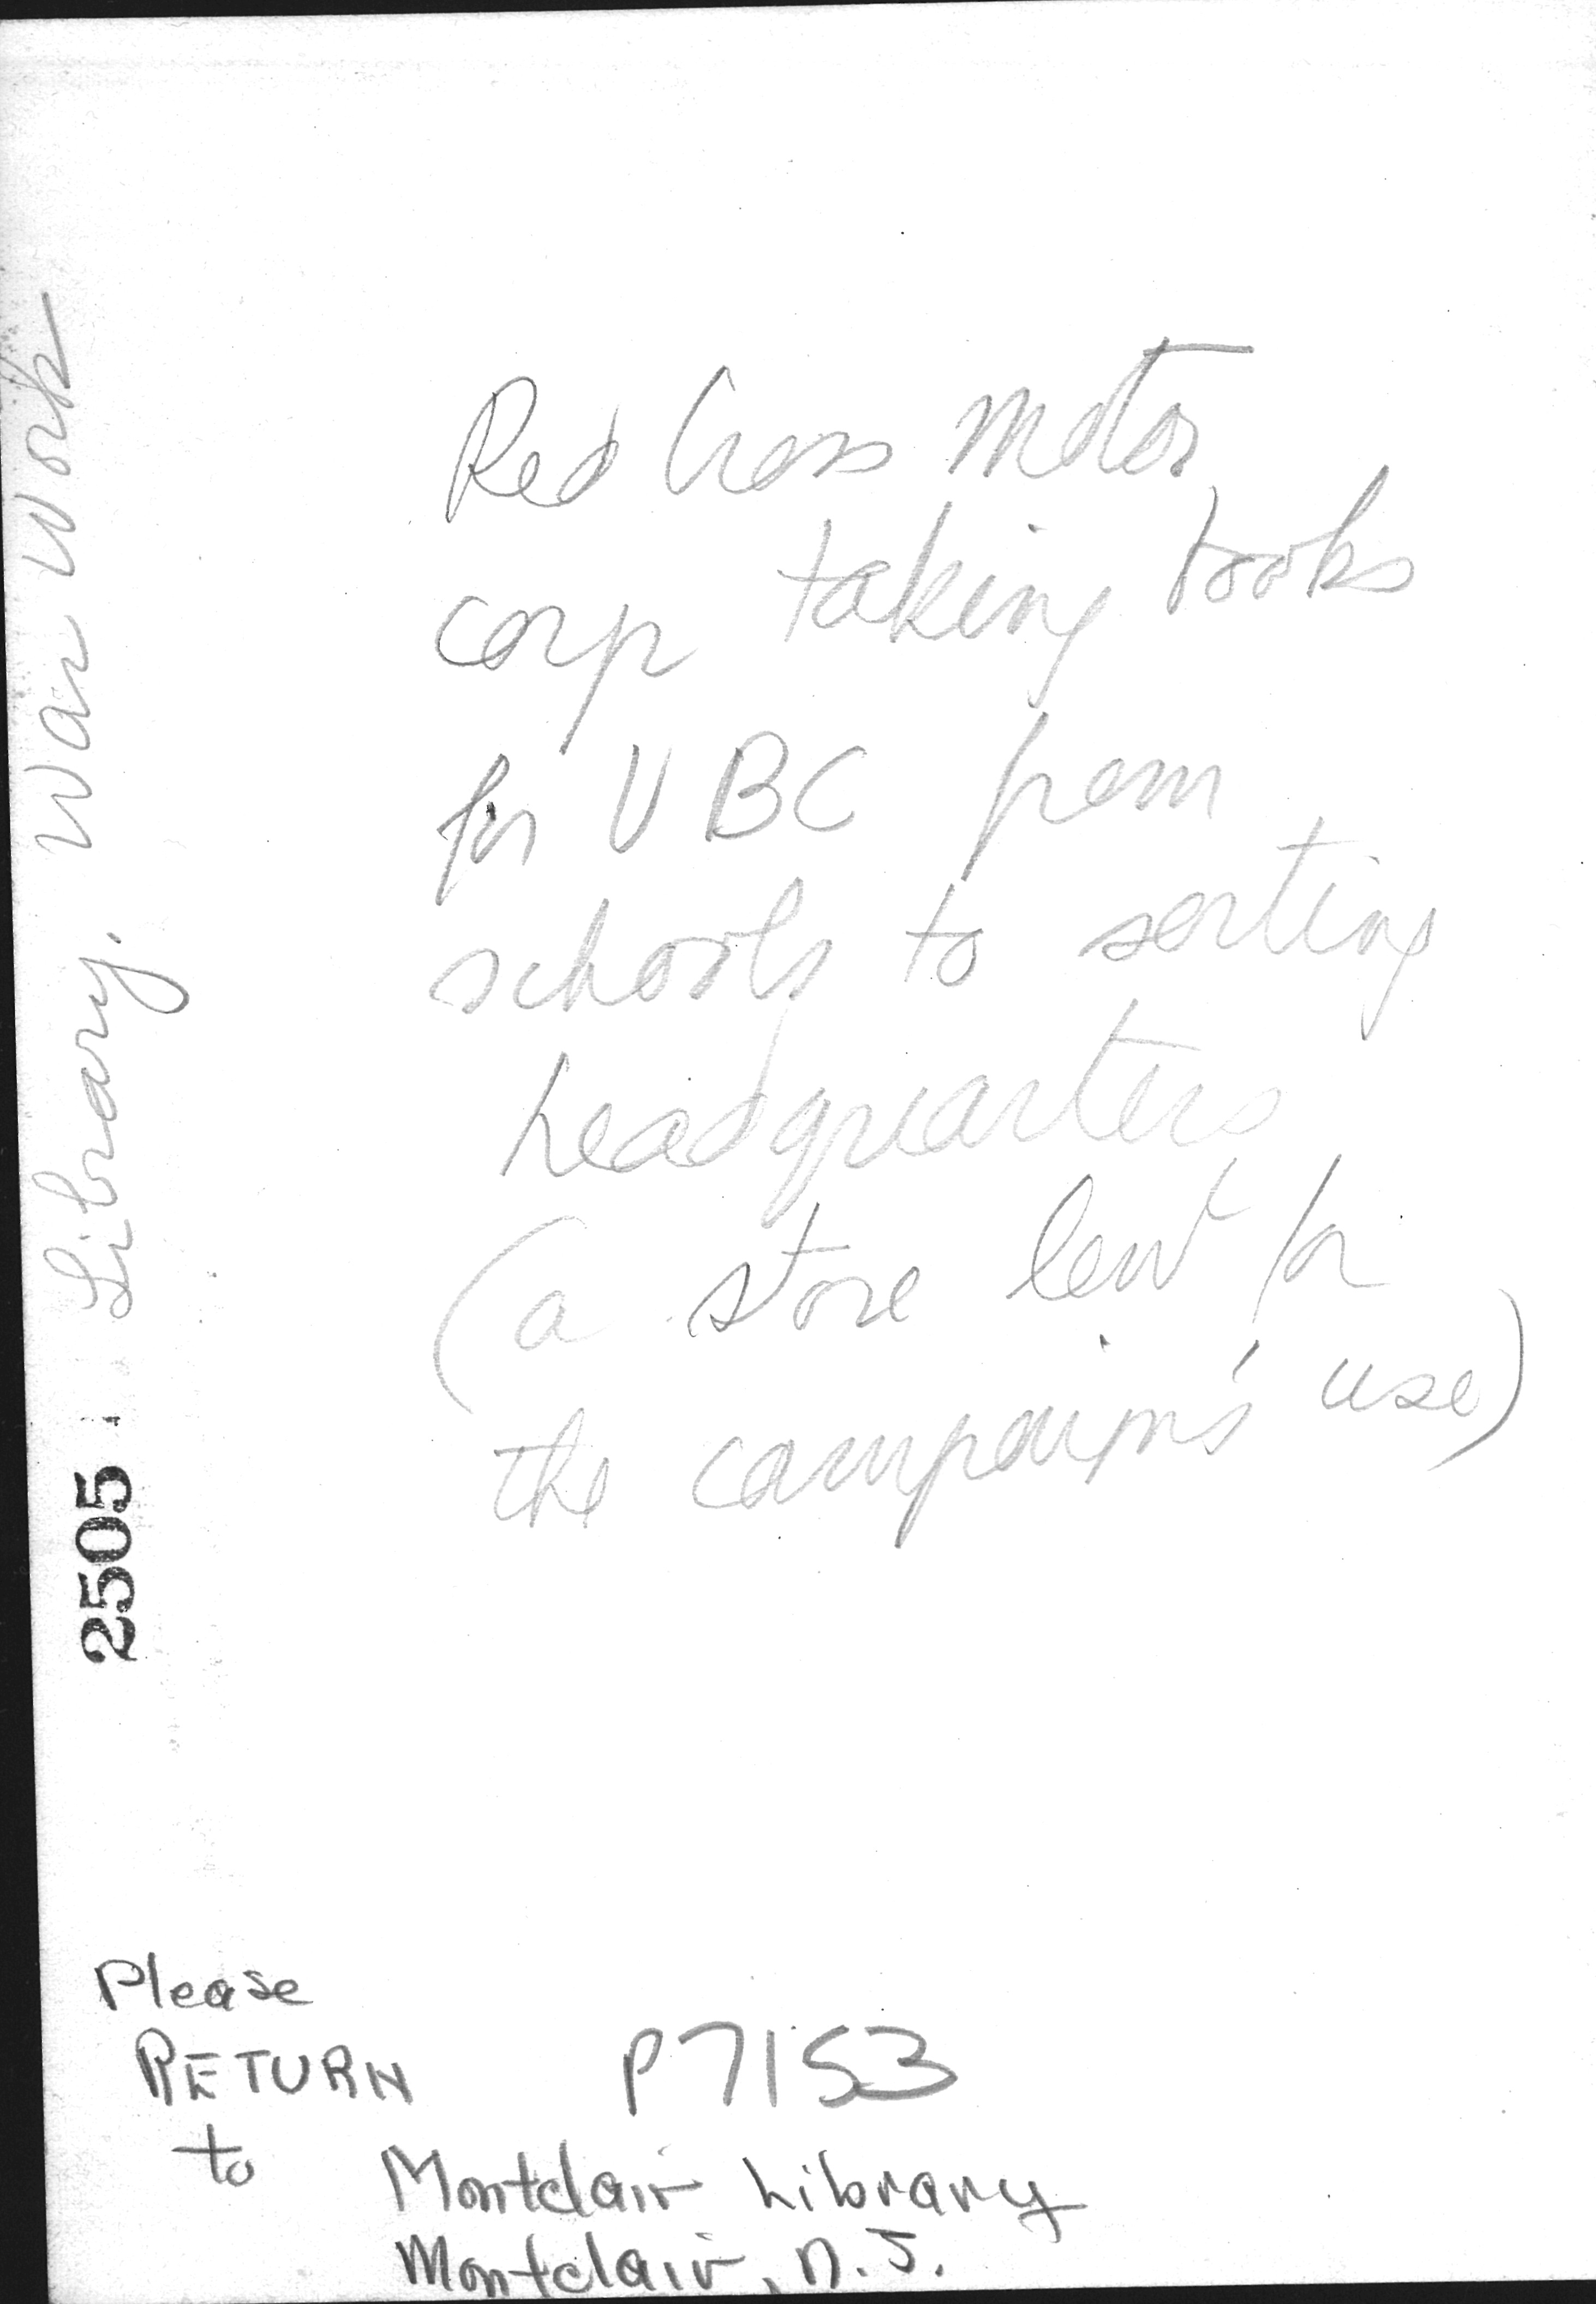 Red Cross Motor
corp taking books
for VBC from
schools to sorting
headquarters
(a store lent for
the campaign's use)
Library. War Work
2505
Please
RETURN
to
P7153
Montclair Library
Montclair, N.J.